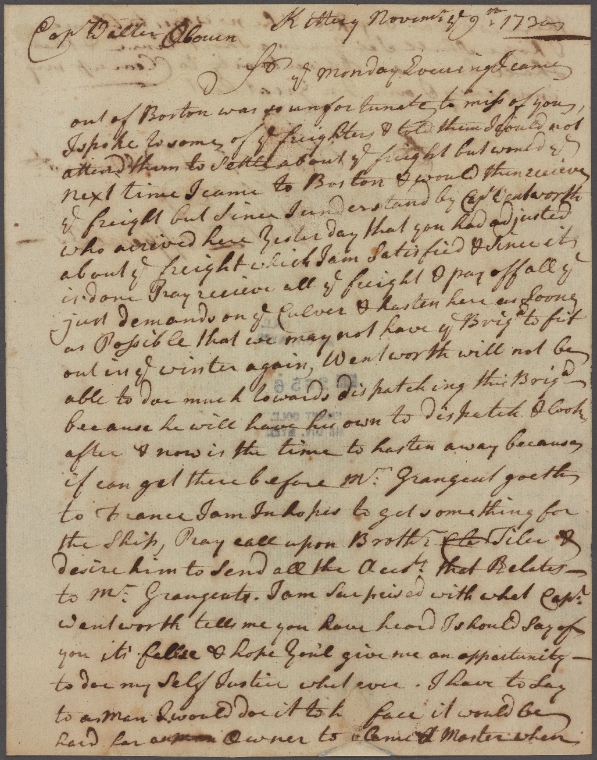 Kittery Novemr. ye 9th 173
Capt Walter
Sr ye Monday Evening I came
out of Boston was so unfortunate to miss of you,
I spoke to some of ye freighters & told them I could not
attend them to settle about ye freight but would ye
next time I came to Boston & would then recieve
ye freight but since I understand by Capt Wentworth
who arrived here Yesterday that you had adjusted
about ye freight which I am Satisfied & Since it is
is done Pray recieve all ye freight & pay off all ye
just demands on ye Culver & hasten here as soon
as Possible that we may not have ye Brigt to fit
out in ye winter again, Wentworth will not be
able to doe much towards dispatching this Brigt
because he will have his own to dispatch & look
after & now is the time to hasten away because
if can get there before Mr. Grangent goeth
to France I am In hopes to get something for
the Ship, Pray call upon Brothr. Tiler &
desire him to Send all the Accts. that Relates
to Mr. Grangents. I am Surprised with what Capt.
Wentworth tells me you have heard I should Say of
you it's false & hope You'l give me an oppertunity
to doe my Self Justice whatever. I have to Say
to a man I would doe it to h face it would be
hard for a Owner to blame a Master when